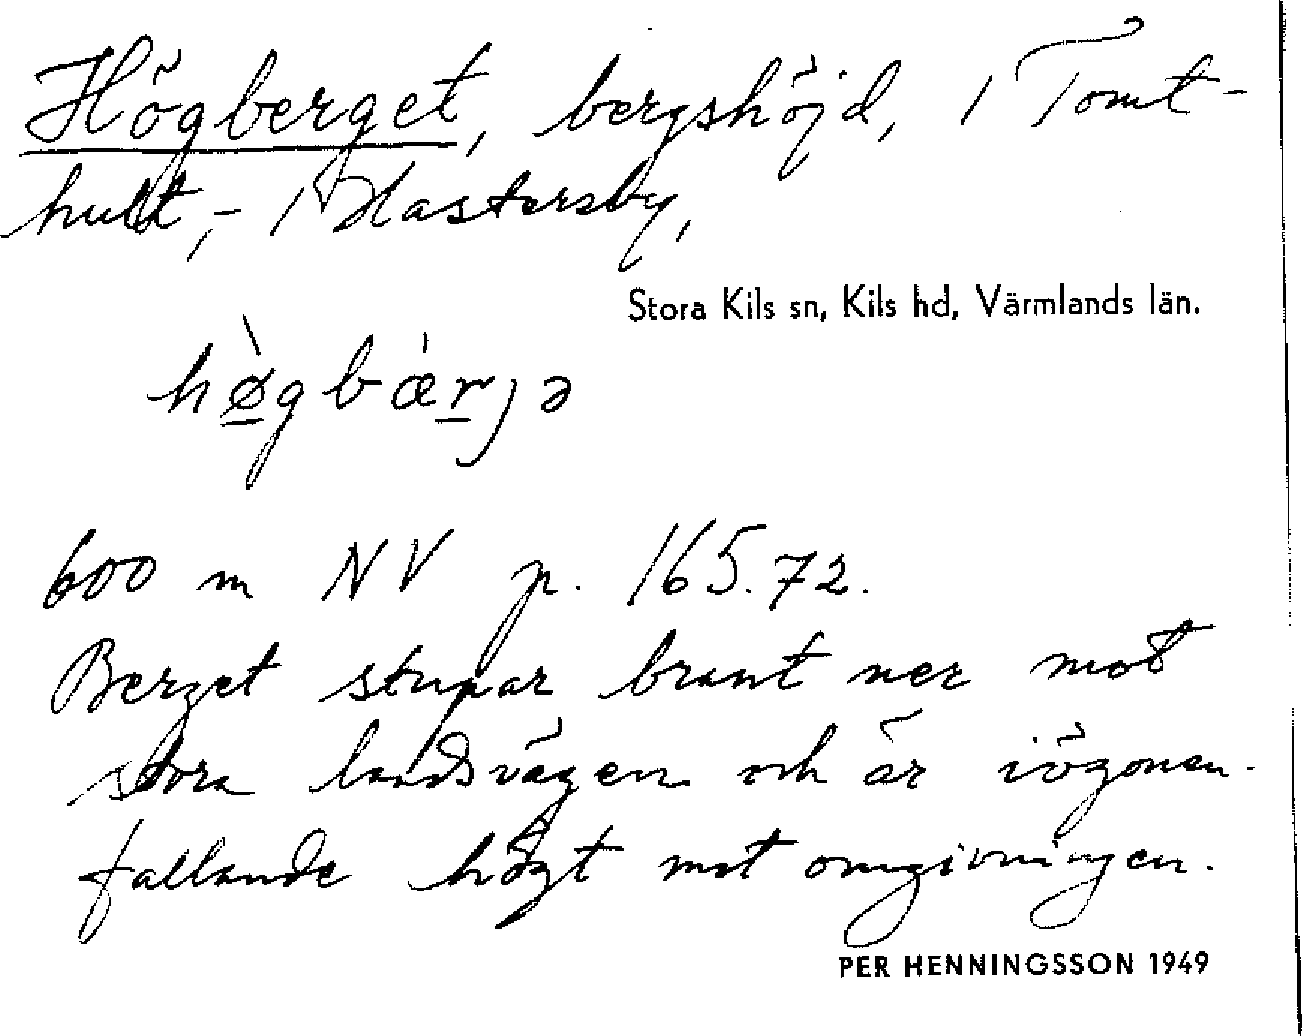 Högberget, bergshöjd, i Tomt-
hult, - i Hastersby,
Stora Kils sn, Kils hd, Värmlands län.
hø̀gbær̀jə
600 m NV p. 165.72.
Berget stupar brant ner mot
stora landsvägen och är iögonen-
fallande högt mot omgivningen.
PER HENNINGSSON 1949